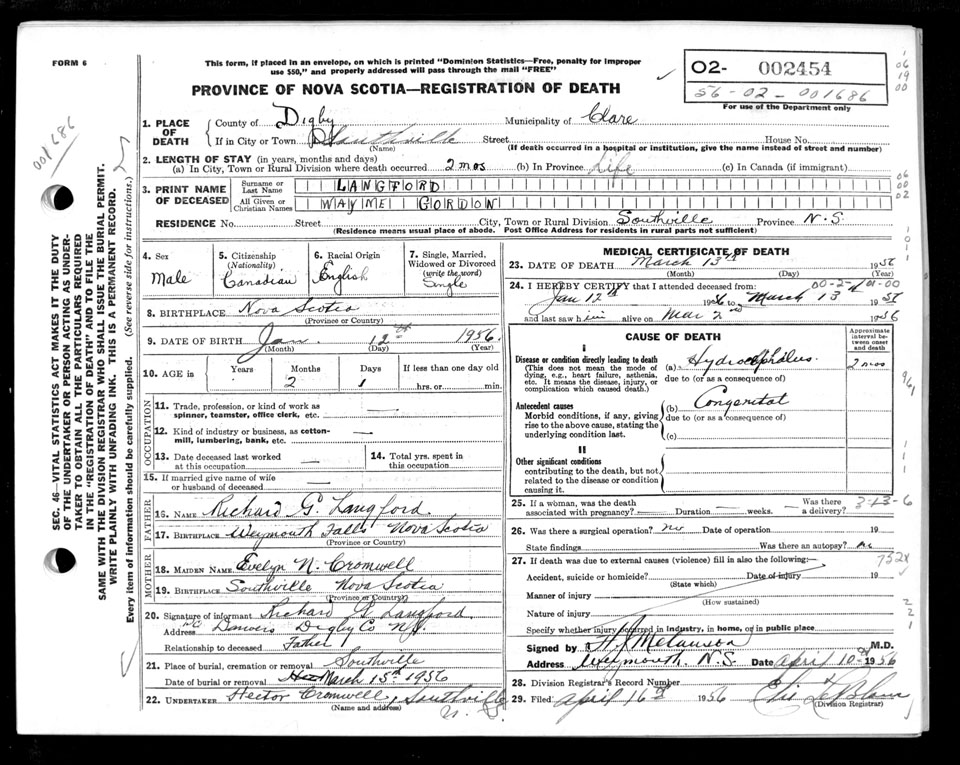 FORM 6
This form, if placed in an envelope, on which is printed "Dominion Statistics—Free, penalty for improper
use $50," and properly addressed will pass through the mail "FREE"
PROVINCE OF NOVA SCOTIA—REGISTRATION OF DEATH
02- 002454
56-02-001686
For use of the Department only
001686
SEC. 46—VITAL STATISTICS ACT MAKES IT THE DUTY
OF THE UNDERTAKER OR PERSON ACTING AS UNDER-
TAKER TO OBTAIN ALL THE PARTICULARS REQUIRED
IN THE "REGISTRATION OF DEATH" AND TO FILE THE
SAME WITH THE DIVISION REGISTRAR WHO SHALL ISSUE THE BURIAL PERMIT.
WRITE PLAINLY WITH UNFADING INK. THIS IS A PERMANENT RECORD.
Every item of information should be carefully supplied. (See reverse side for instructions.)
1. PLACE OF DEATH County of Digby Municipality of Clare
If in City or Town Southville Street House No.
(Name) (If death occurred in a hospital or institution, give the name instead of street and number)
2. LENGTH OF STAY (in years, months and days)
(a) In City, Town or Rural Division where death occurred 2 mos (b) In Province Life (c) In Canada (if immigrant)
3. PRINT NAME OF DECEASED Surname or Last Name LANGFORD
All Given or Christian Names WAYME GORDON
RESIDENCE No. Street City, Town or Rural Division Southville Province N.S.
(Residence means usual place of abode. Post Office Address for residents in rural parts not sufficient)
4. Sex Male
5. Citizenship (Nationality) Canadian
6. Racial Origin English
7. Single, Married, Widowed or Divorced (write the word) Single
8. BIRTHPLACE Nova Scotia
(Province or Country)
9. DATE OF BIRTH Jan. 12th 1956
(Month) (Day) (Year)
10. AGE in Years Months 2 Days 1 If less than one day old
hrs. or min.
OCCUPATION
11. Trade, profession, or kind of work as spinner, teamster, office clerk, etc. —
12. Kind of industry or business, as cotton-mill, lumbering, bank, etc. —
13. Date deceased last worked at this occupation —
14. Total yrs. spent in this occupation
15. If married give name of wife or husband of deceased —
FATHER
16. NAME Richard G. Langford
17. BIRTHPLACE Weymouth Falls Nova Scotia
(Province or Country)
MOTHER
18. MAIDEN NAME Evelyn N. Cromwell
19. BIRTHPLACE Southville Nova Scotia
(Province or Country)
20. Signature of informant Richard G Langford
Address Danvers Digby Co N.S.
Relationship to deceased Father
21. Place of burial, cremation or removal Southville
Date of burial or removal March 15th 1956
22. UNDERTAKER Hector Cromwell, Southville
(Name and address) N.S.
MEDICAL CERTIFICATE OF DEATH
23. DATE OF DEATH March 13th 1956
(Month) (Day) (Year)
24. I HEREBY CERTIFY that I attended deceased from:
Jan 12th 1956 to March 13 1956
and last saw him alive on Mar 2nd 1956
CAUSE OF DEATH
Approximate interval between onset and death
I
Disease or condition directly leading to death
(This does not mean the mode of dying, e.g., heart failure, asthenia, etc. It means the disease, injury, or complication which caused death.)
(a) Hydrocephalus. 2 mos
due to (or as a consequence of)
Antecedent causes
Morbid conditions, if any, giving rise to the above cause, stating the underlying condition last.
(b) Congenital
due to (or as a consequence of)
(c)
II
Other significant conditions
contributing to the death, but not related to the disease or condition causing it.
25. If a woman, was the death associated with pregnancy? Duration weeks. Was there a delivery?
3-13-6
26. Was there a surgical operation? no Date of operation 19
State findings Was there an autopsy? no
27. If death was due to external causes (violence) fill in also the following:—
Accident, suicide or homicide? Date of injury 19
(State which)
Manner of injury
(How sustained)
Nature of injury
Specify whether injury occurred in industry, in home, or in public place
Signed by Melanson M.D.
Address Weymouth, N.S. Date April 10 1956
28. Division Registrar's Record Number
29. Filed April 16th 1956
(Division Registrar)